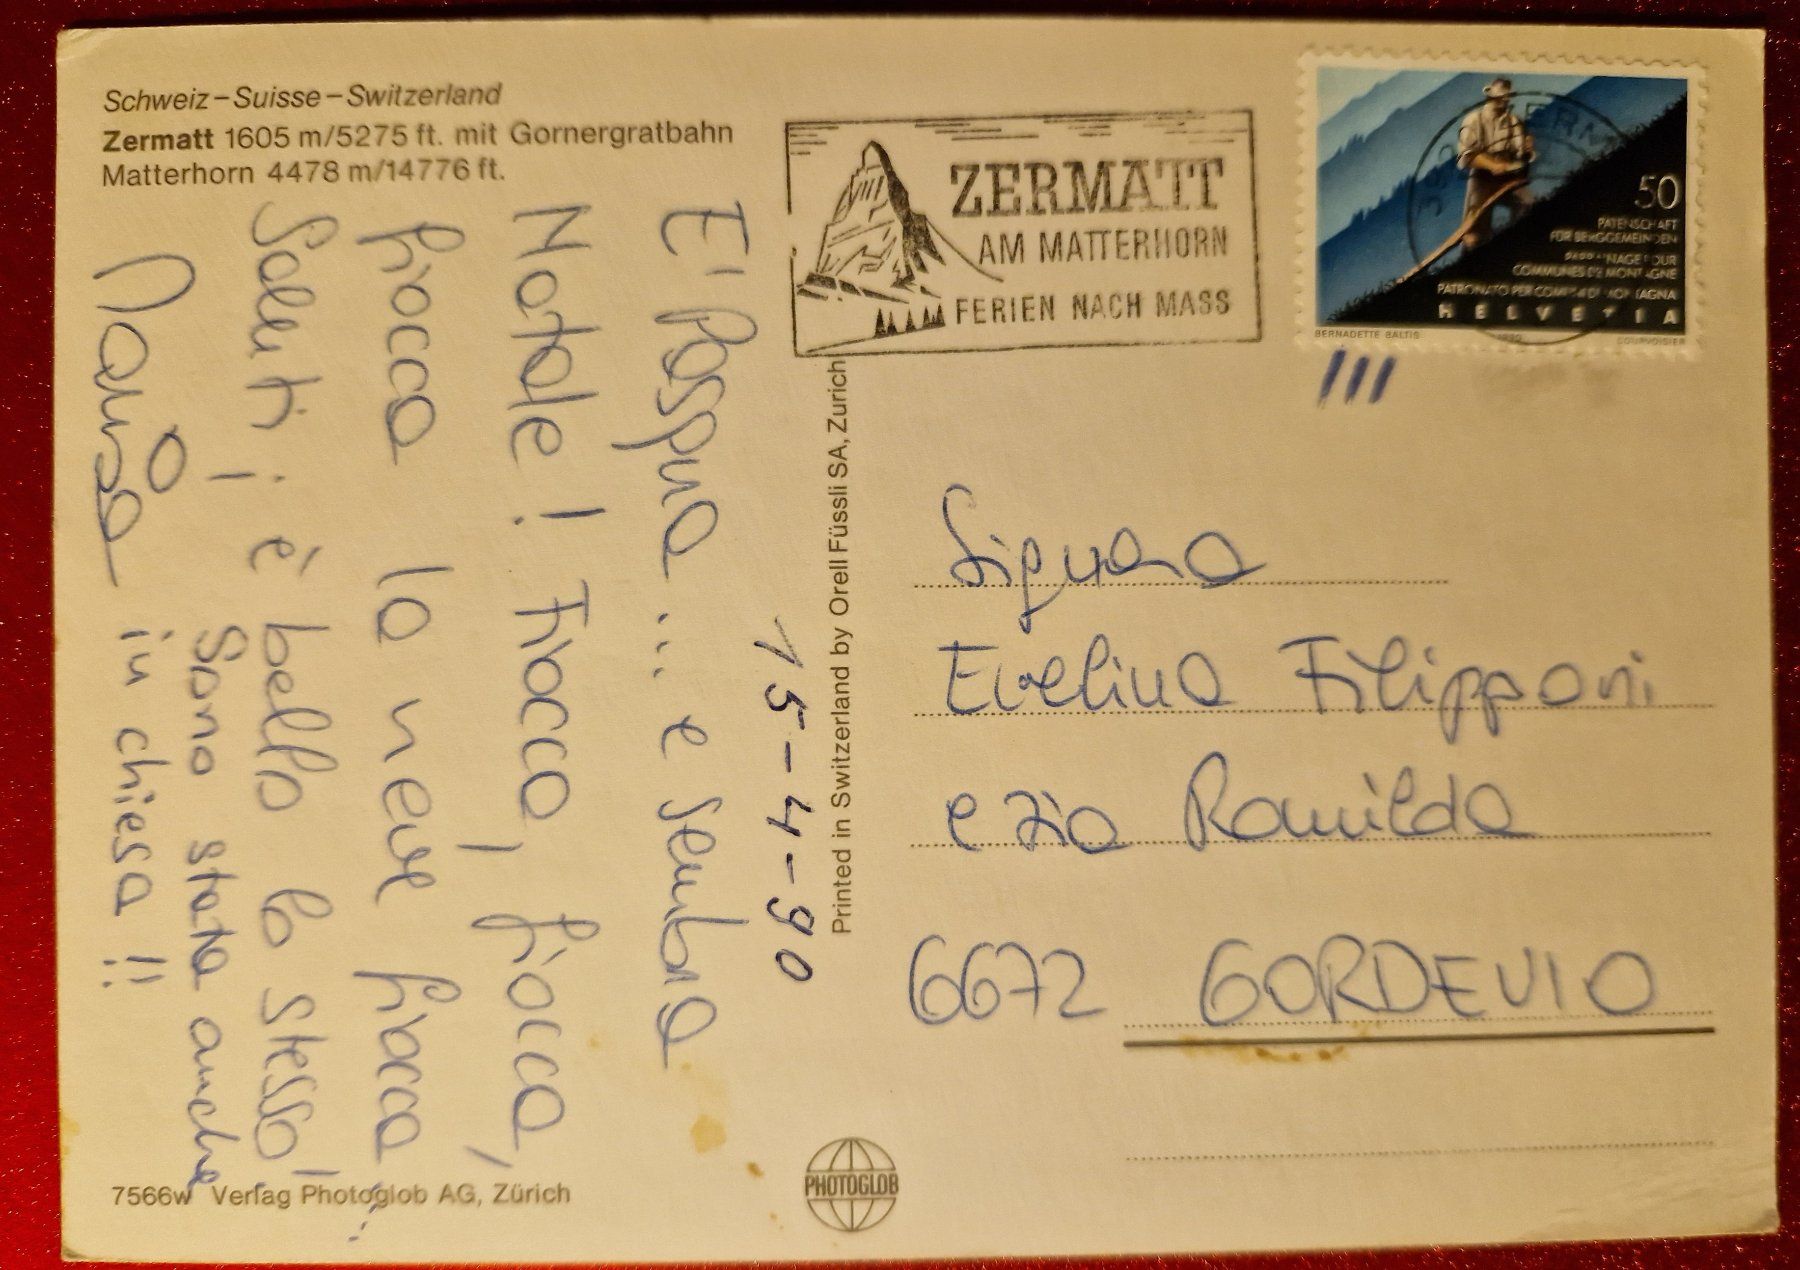 Schweiz–Suisse–Switzerland
Zermatt 1605 m/5275 ft. mit Gornergratbahn
Matterhorn 4478 m/14776 ft.
15-4-90
E' Pasqua ... e sembra
Natale! Fiocca, fiocca,
fiocca la neve fiocca ...
Saluti, è bello lo stesso!
Sono stata anche
in chiesa!!
Printed in Switzerland by Orell Füssli SA, Zurich
7566w Verlag Photoglob AG, Zürich
PHOTOGLOB
ZERMATT
AM MATTERHORN
FERIEN NACH MASS
50
PATENSCHAFT
FÜR BERGGEMEINDEN
PARRAINAGE POUR
COMMUNES DE MONTAGNE
PATRONATO PER COMUNI DI MONTAGNA
HELVETIA
BERNADETTE BALTIS 1990 COURVOISIER
Signora
Evelina Filipponi
e zia Romilda
6672 GORDEVIO